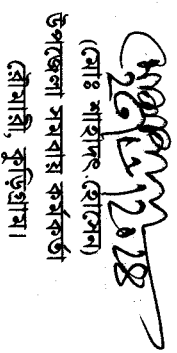 (মোঃ শাহাদৎ.হোসেন)
উপজেলা সমবায় কর্মকর্তা
রৌমারী, কুড়িগ্রাম।